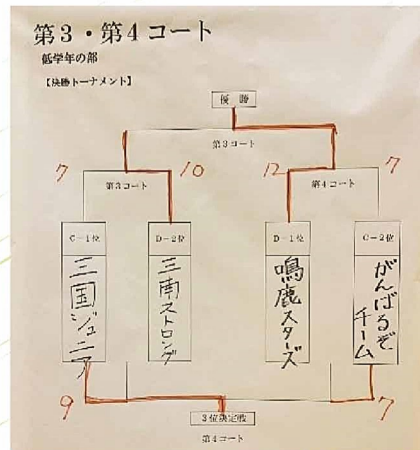 第3・第4コート
低学年の部
【決勝トーナメント】
優勝
第3コート
7
10
12
7
第3コート
第4コート
C-1位
D-2位
D-1位
C-2位
三国ジュニア
三南ストロング
鳴鹿スターズ
がんばるぞ
チーム
9
7
3位決定戦
第4コート